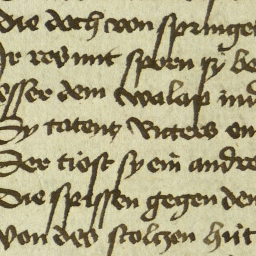 die doch von springe
Ir ros mit sporn sy be
esser dem walap mi
Sy totentz Ritters en
Der tiost sy ein andre
Die spissen gegen den
Von des stoltzen hüt